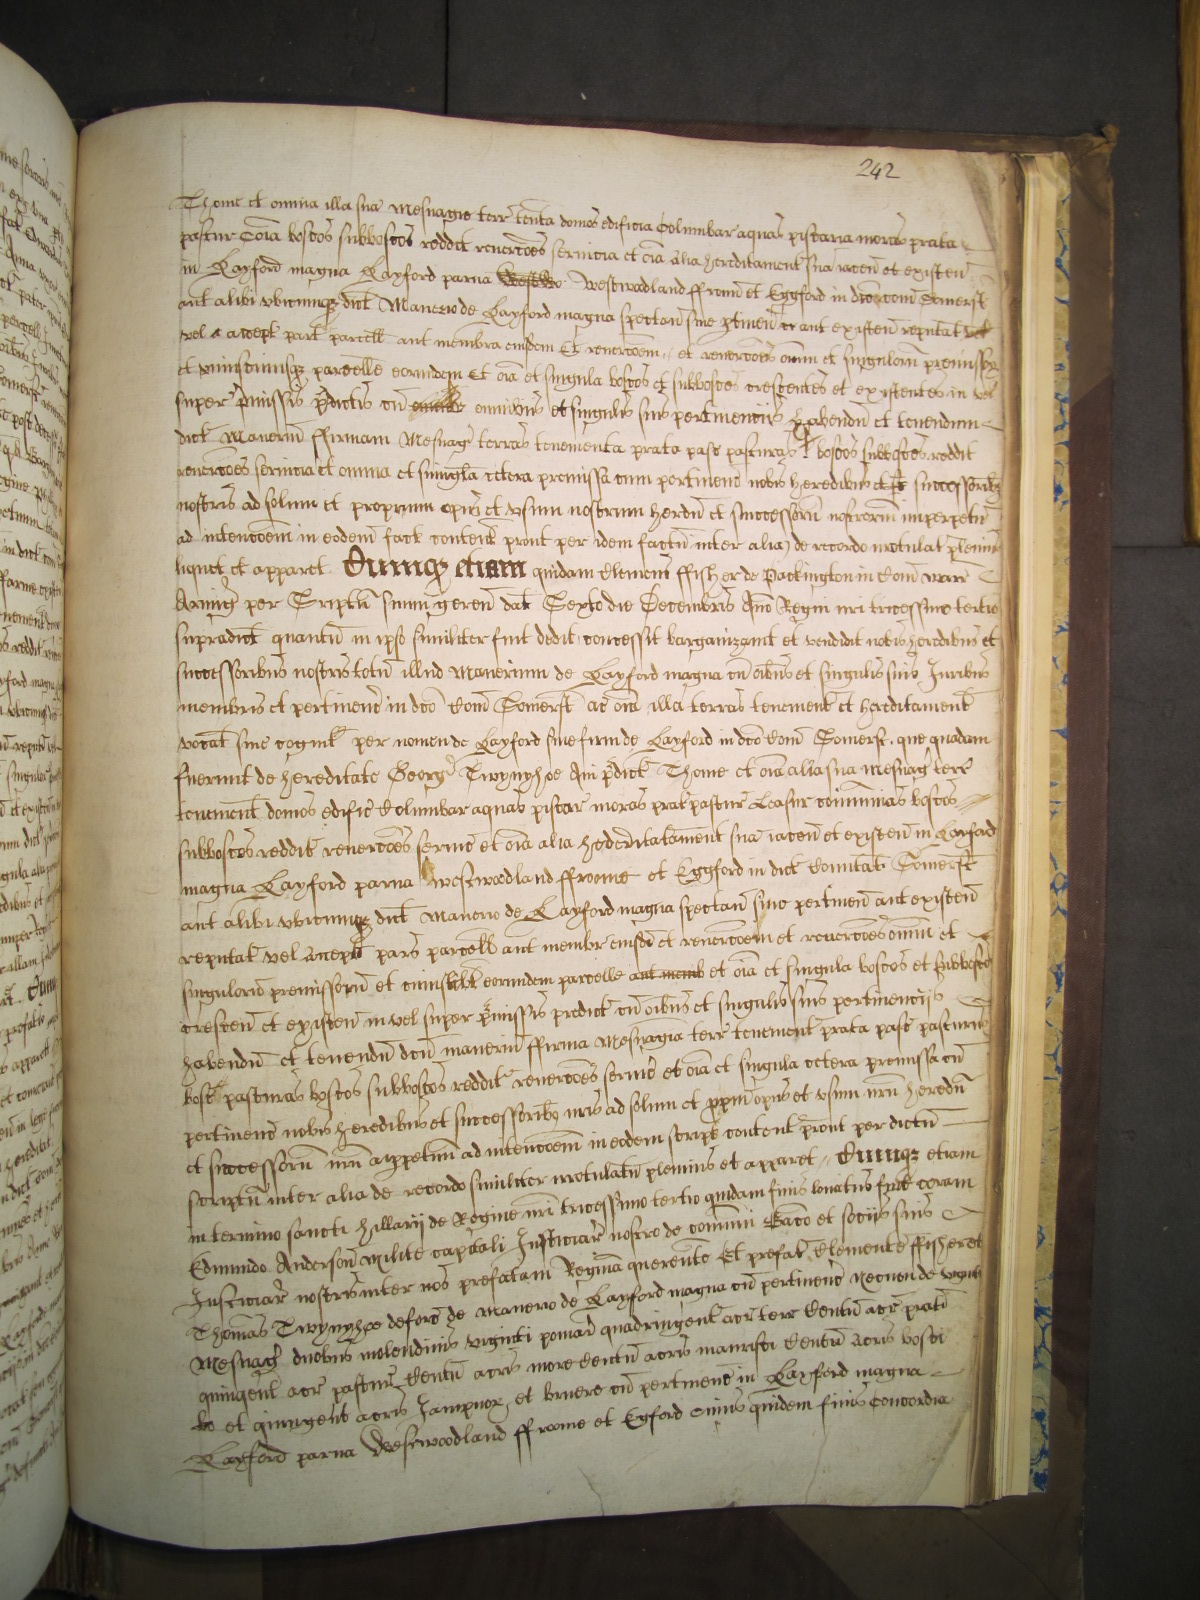 242
Thome et omnia illa sua Mesuagia terr tenta domos edificia Columbar aquas piscaria moras prata
pastur Coia boscos subboscos reddit reuercoes seruicia et oia alia hereditament sua iacen et existen
in Layford magna Layford parna Westwodland ffrome et Eggford in dco com Somerst
aut alibi vbicumq dict Manerio de Layford magna spectan siue ptinen aut existen reputat vel
vel accept part parcell aut membra eiusdem Et reuercoem et reuercoes omn et singulorum premissor
et cuiuslibet parcelle eorundem Et oia et singula boscos et subboscos crescentes et existentes in vel
super pmissis pdictis cu omnibus et singulis suis pertinencijs habendum et tenendum
dict Manerium ffirmam Mesuag terras tenementa prata past pasturas boscos subboscos reddit
reuercoes seruicia et omnia et singula cetera premissa cum pertinenc nobis heredibus et successorib
nostris ad solum et proprium opus et vsum nostrum hered et successorum nostrorum imperpetuu
ad intencoem in eodem fact content prout per idem factu inter alia de recordo irrotulat plenius
liquet et apparet Cumq etiam quidam Clemens ffisher de Packington in Com warr
Armig per Scriptu suum geren dat Sexto die Decembris Ano Regni nri tricessimo tertio
supradict quantu in ipso similiter fuit dedit concessit barganizauit et vendidit nobis heredibus et
successoribus nostris totu illud Manerium de Layford magna cu oibus et singulis suis Juribus
membris et pertinenc in dco Com Somerst ac oia illa terras tenement et hereditament
vocat siue cognit per nomen de Layford siue firm de Layford in dco Com Somerst que quondam
fuerunt de hereditate Georg Twynyhoe Ar pdict Thome et oia alia sua Mesuag terr
tenement domos edific Columbar aquas piscar moras prat pastur Leasur communias boscos
subboscos reddit reuercoes seruic et oia alia hereditament sua iacen et existen in Layford
magna Layford parna westwoodland ffroome et Eggford in dict Comitat Somerst
aut alibi vbicumq dict Manerio de Layford magna spectan siue pertinen aut existen
reputat vel accept pars parcell aut membr eiusd et reuercoem et reuercoes omni et
singuloru premissoru et cuiuslibt eorundem parcelle aut memb et oia et singula boscos et subboscos
crescen et existen in vel super pmissis predict cu oibus et singulis suis pertinencijs
habendu et tenendu dcu maneriu ffirma Mesuagia terr tenement prata past pasturas
bosc pasturas boscos subboscos reddit reuercoes seruic et oia et singula cetera premissa cu
pertinenc nobis heredibus et successorib nris ad solum et ppriu opus et vsum nrm heredu
et successoru nru imppetuu ad intencoem in eodem script content prout per dictu
scriptu inter alia de recordo similiter irrotulatu plenius et apparet Cumq etiam
in termino sancti Hillarij de Regine nri tricessimo tertio quidam finis leuatus fuit coram
Edmundo Anderson milite capitali Justiciar nostro de communi Banco et socijs suis
Justiciar nostris inter nos prefatam Reginam querente Et prefat Clemente ffisher et
Thomas Twynyhoe deforc de Manerio de Layford magna cu pertinenc Necnon de viginti
Mesuag duobus molendinis viginti pomar quadringent acr terr Centu acr prati
quingent acr pastur Centu acris more Centu acris marisci Centu acris bosci
et quingent acris Jampnor et bruere cu pertinenc in Layford magna
Layford parna Westwoodland ffroome et Egford cuius quidem finis Concordia